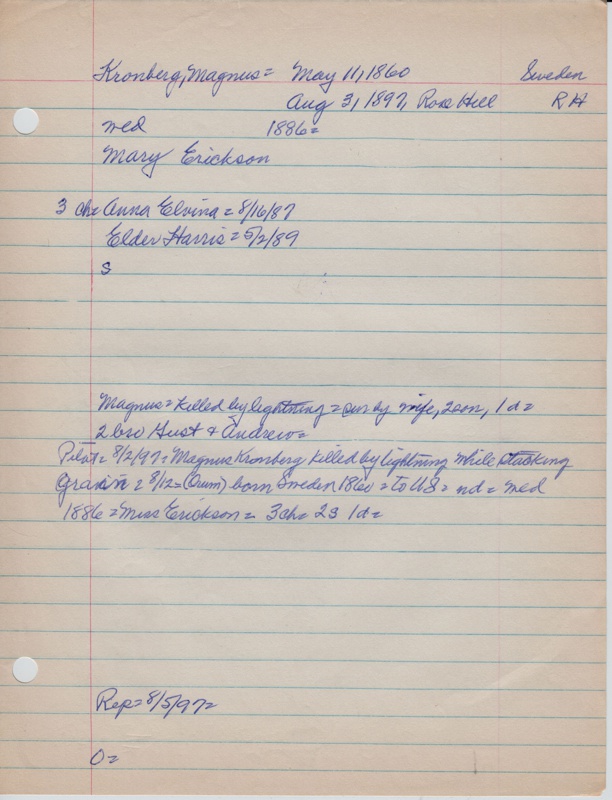 Kronberg, Magnus = May 11, 1860 Sweden
Aug 3, 1897, Rose Hill RH
med 1886 =
Mary Erickson
3 ch = Anna Elvina = 8/16/87
Elder Harris = 5/2/89
S
Magnus = killed by lightning = sur by wife, 2 son, 1 d =
2 bro Gust & Andrew =
Pilot = 8/2/97 = Magnus Kronberg killed by lightning while stacking
grain = 8/12 = (Quim) born Sweden 1860 = to US = nd = med
1886 = Miss Erickson = 3 ch = 2 s 1 d =
Rep = 8/5/97 =
O =